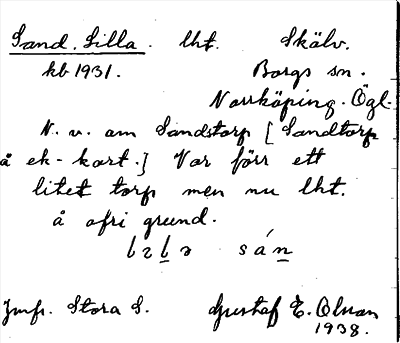 Sand, Lilla. lht. Skälv.
kb 1931. Borgs sn.
Norrköping. Ögl.
N. v. om Sandstorp [Sandtorp
å ek-kart.] Var förr ett
litet torp men nu lht.
å ofri grund.
sán
Jmfr. Stora S. Gustaf E. Olsson
1938.